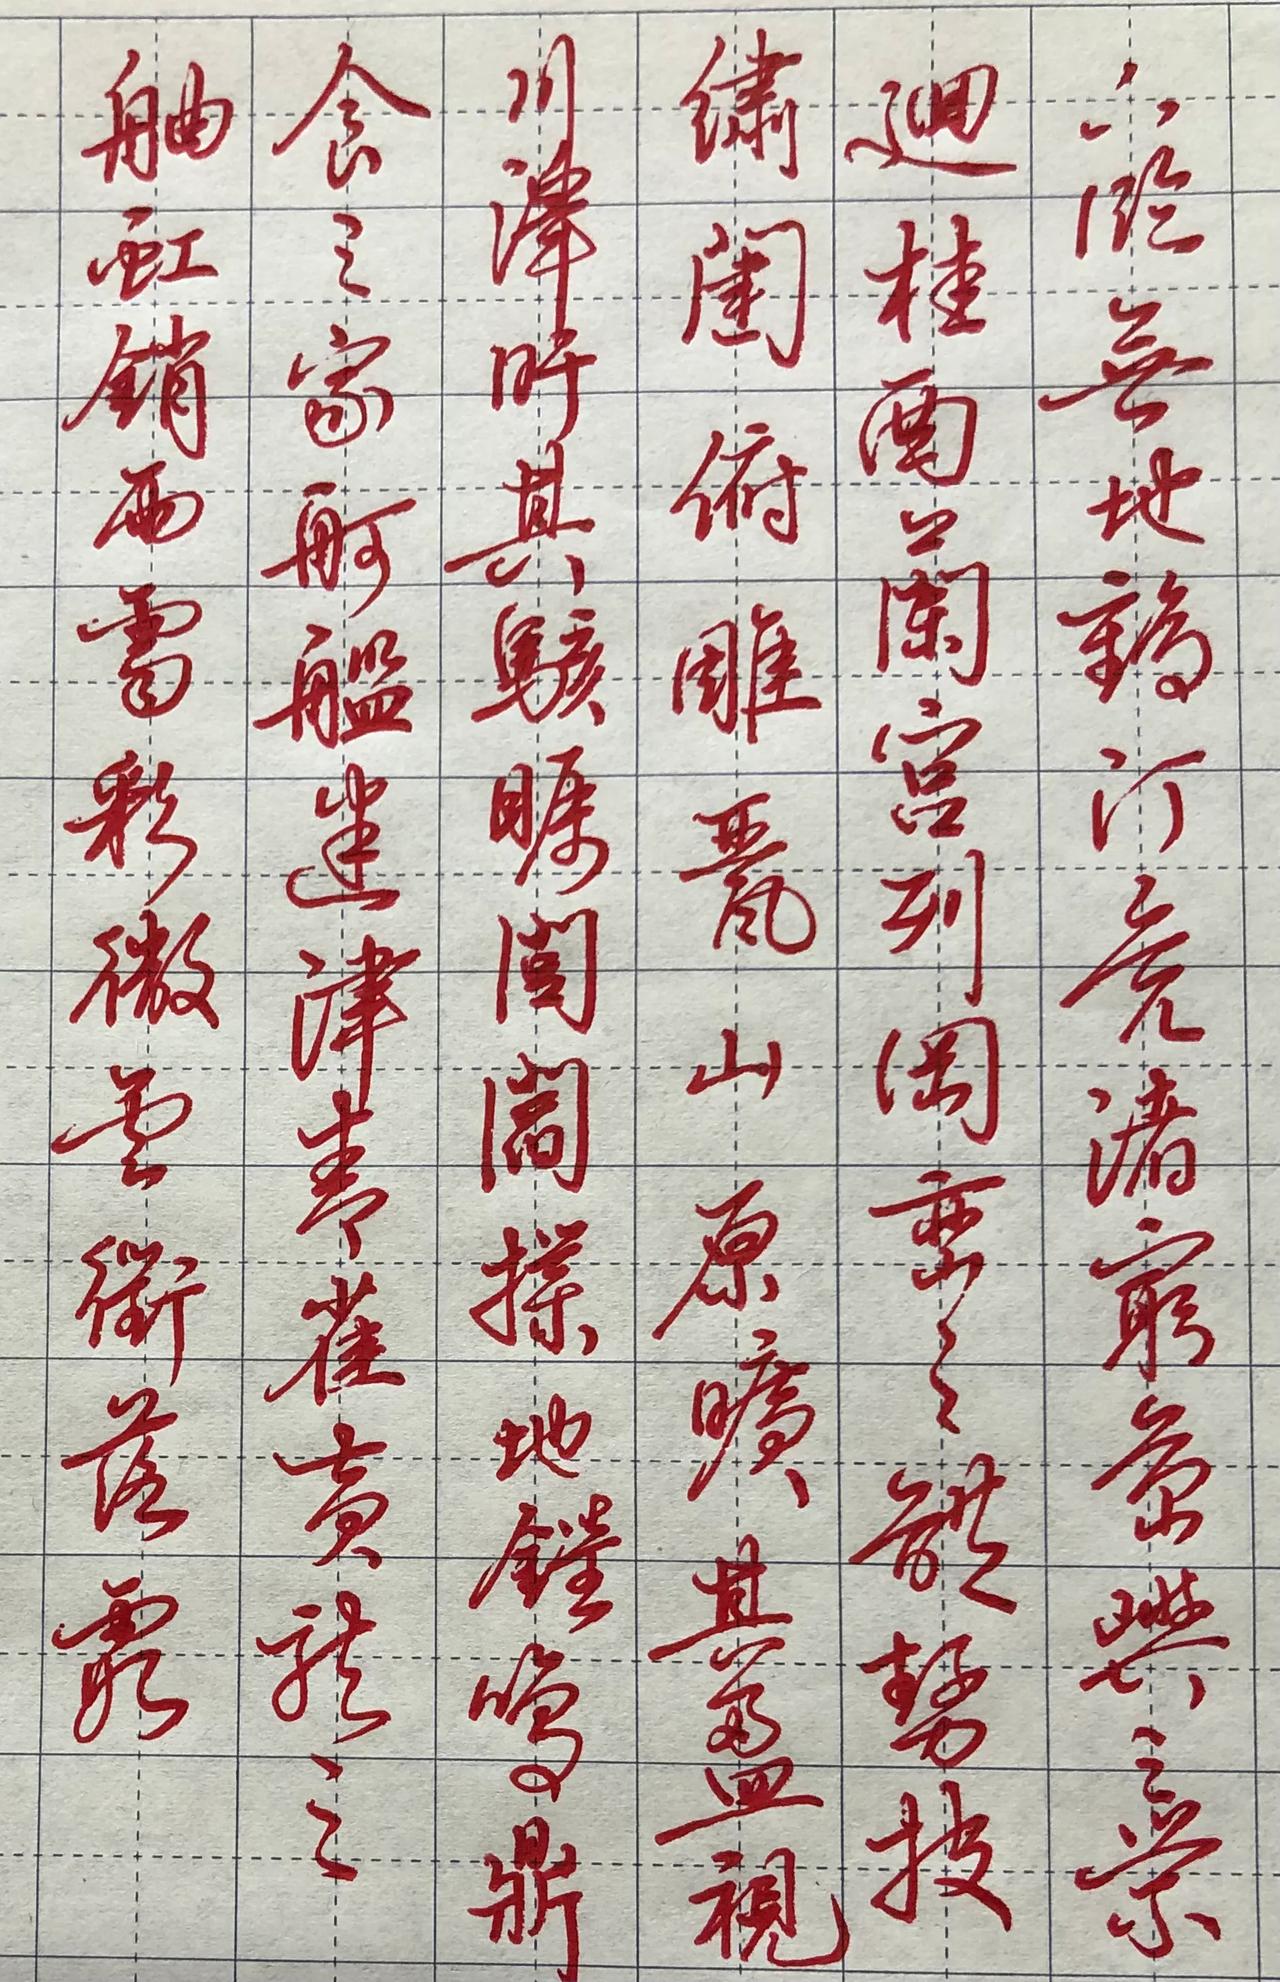 下臨無地鶴汀凫渚窮島嶼之縈
迴桂殿蘭宮列岡巒之體勢披
繡闥俯雕甍山原曠其盈視
川澤盱其駭矚閭閻撲地鐘鳴鼎
食之家舸艦迷津青雀黃龍之
舳虹銷雨霽彩徹雲衢落霞